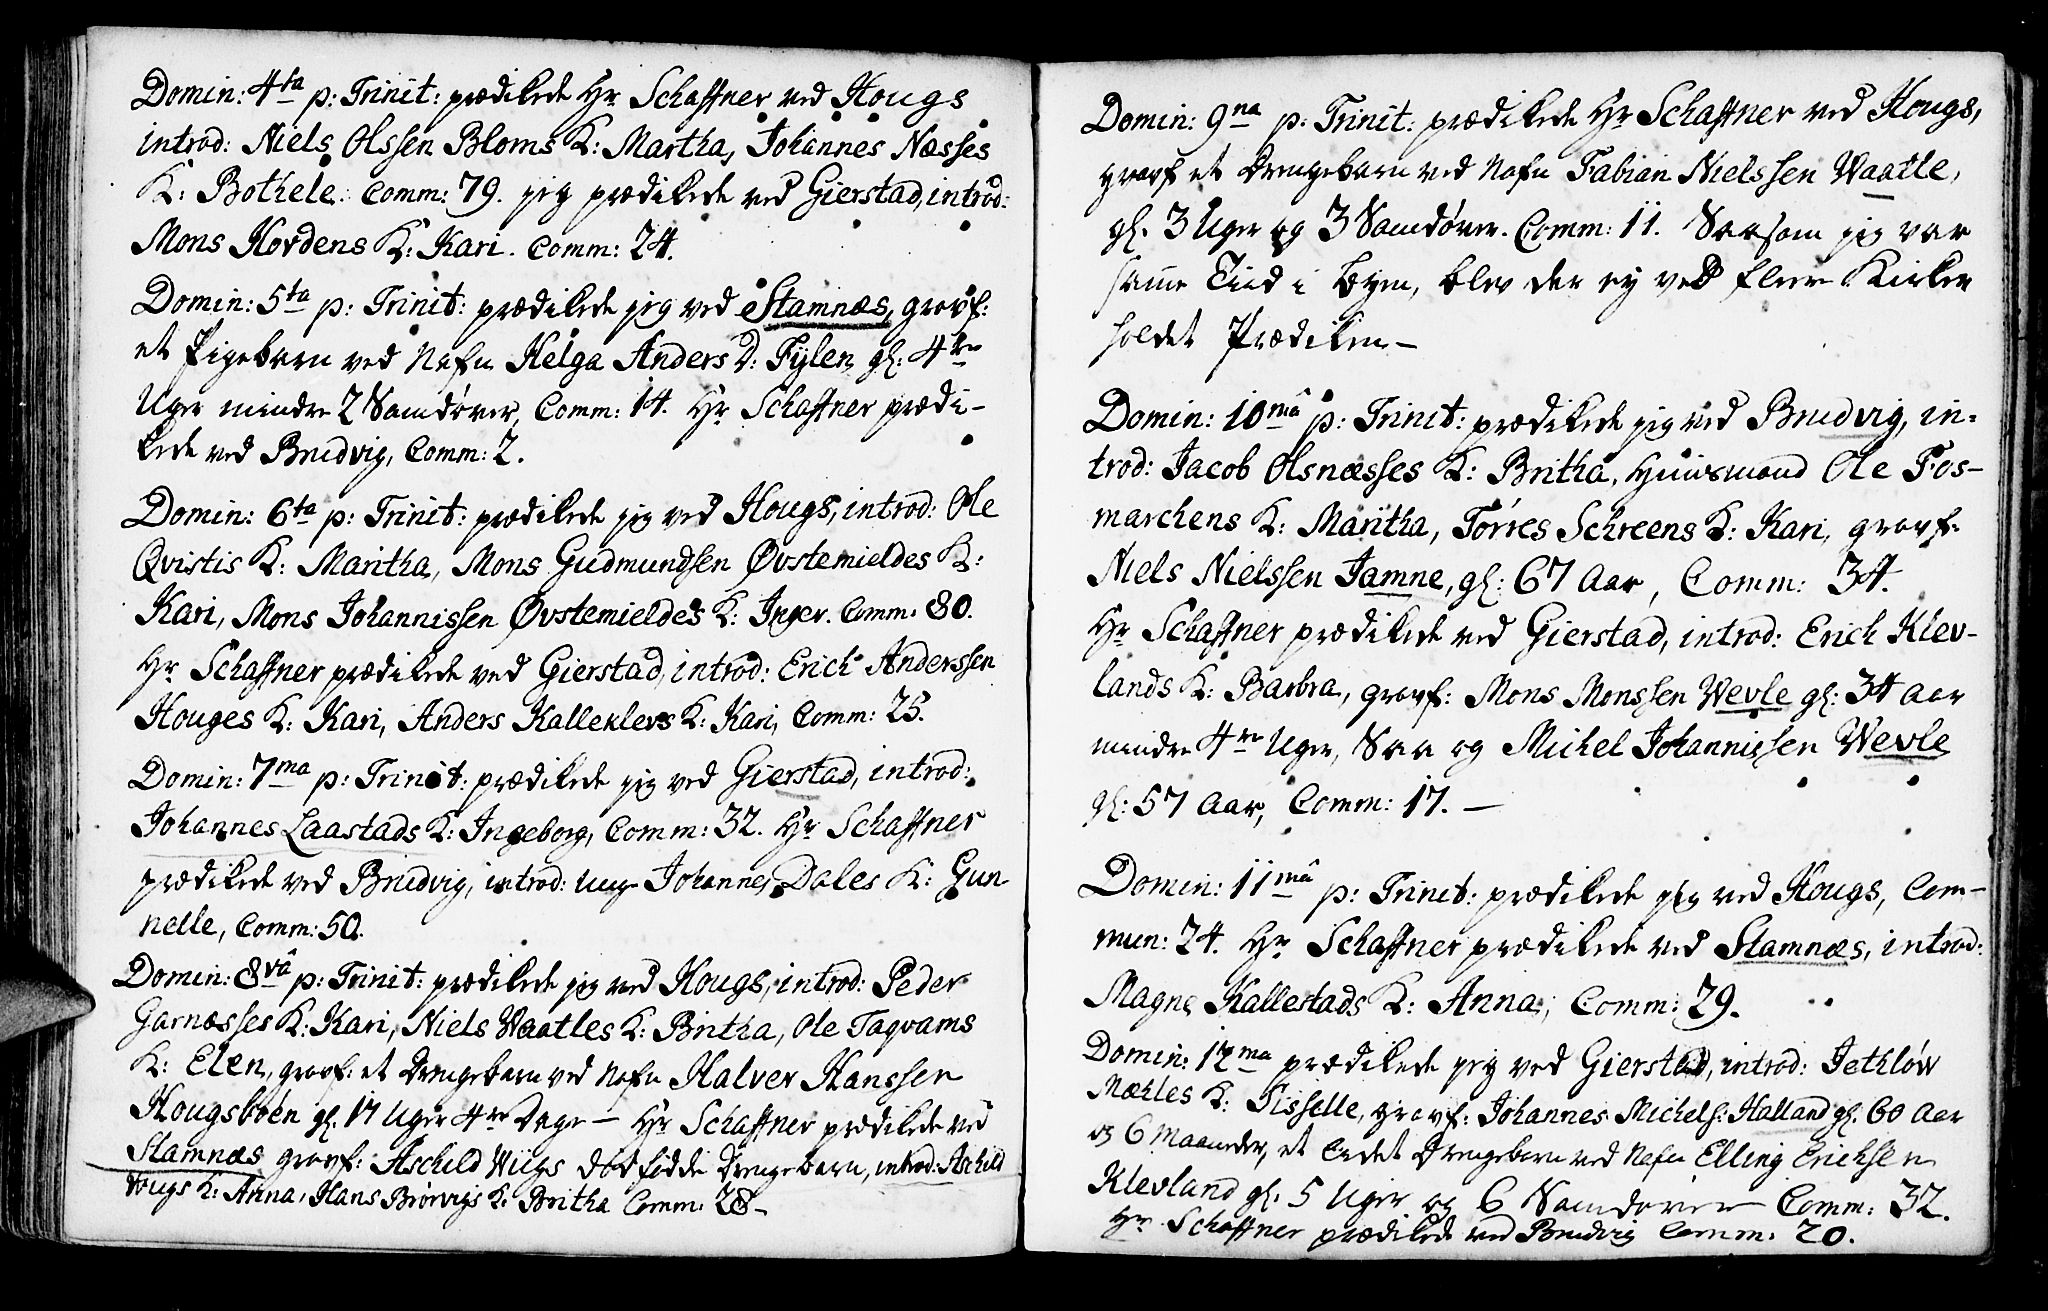 Domin: 4ta p: Trinit: prædikede Hr Schaffner ved Hougs
introd: Niels Olssen Bloms K: Martha, Johannes Næsses
K: Bothele. Comm: 79. jeg prædikede ved Gierstad, introd:
Mons Hordens K: Kari. Comm: 24.
Domin: 5ta p: Trinit: prædikede jeg ved Stamnæs, gravf:
et Pigebarn ved Nafn Helga Anders D: Fÿlen, gl: 4re
Uger mindre 2 Samdøver, Comm: 14. Hr Schaffner prædi-
kede ved Brudvig, Comm: 2.
Domin: 6ta p: Trinit: prædikede jeg ved Hougs, introd: Ole
Qvistis K: Maritha, Mons Gudmundsen Øvstemieldes K:
Kari, Mons Johannissen Øvstemieldes K: Inger. Comm: 80.
Hr Schaffner prædikede ved Gierstad, introd: Erich Anderssen
Houges K: Kari, Anders Kalleklevs K: Kari, Comm: 25.
Domin: 7ma p: Trinit: prædikede jeg ved Gierstad, introd:
Johannes Laastads K: Ingeborg, Comm: 32. Hr Schaffner
prædikede ved Brudvig, introd: unge Johannes Dales K: Gun
nelle, Comm: 50.
Domin: 8vâ p: Trinit: prædikede jeg ved Hougs, introd: Peder
Garnæsses K: Kari, Niels Vaatles K: Britha, Ole Taqvams
K: Elen, gravf: et Drengebarn ved Nafn Halver Hanssen
Hougsboen gl. 17 Uger 4re Dage – Hr Schaffner prædikede ved
Stamnæs gravf: Aschild Wiigs dødfødde Drengebarn, introd: Aschild
Vougs K: Anna, Hans Brørvigs K: Britha Comm: 28 –
Domin: 9na p: Trinit: prædikede Hr Schaffner ved Hougs,
gravf et Drengebarn ved Nafn Fabian Nielssen Waatle,
gl. 3 Uger og 3 Samdøver. Comm: 11. Saasom jeg var
samme Tiid i Byen, blev der ey ved fleere Kirker
holdet Prædiken –
Domin: 10mâ p: Trinit: prædikede jeg ved Brudvig, in-
trod: Jacob Olsnæsses K: Britha, Huusmand Ole Fos-
marchens K: Maritha, Torres Schreens K: Kari, gravf:
Niels Nielssen Jamne, gl: 67 Aar, Comm: 34.
Hr Schaffner prædikede ved Gierstad, introd: Erich Klev-
lands K: Barbra, gravf: Mons Monssen Wevle gl: 34 Aar
mindre 4re Uger, Saa og Michel Johannissen Wevle
gl: 57 Aar, Comm: 17. –
Domin: 11mâ p: Trinit: prædikede jeg ved Hougs, Com-
mun: 24. Hr Schaffner prædikede ved Stamnæs, introd:
Magne Kallestads K: Anna, Comm: 29.
Domin: 12ma prædikede jeg ved Gierstad, introd: Jethlöw
Mæhles K: Sisselle, gravf: Johannes Michels: Halland gl. 60 Aar
og 6 Maaneder, et Andet Drengebarn ved Nafn Elling Erichsen
Klevland gl. 5 Uger og 6 Samdøver Comm: 32.
Hr Schaffner prædikede ved Brudvig Comm: 20.